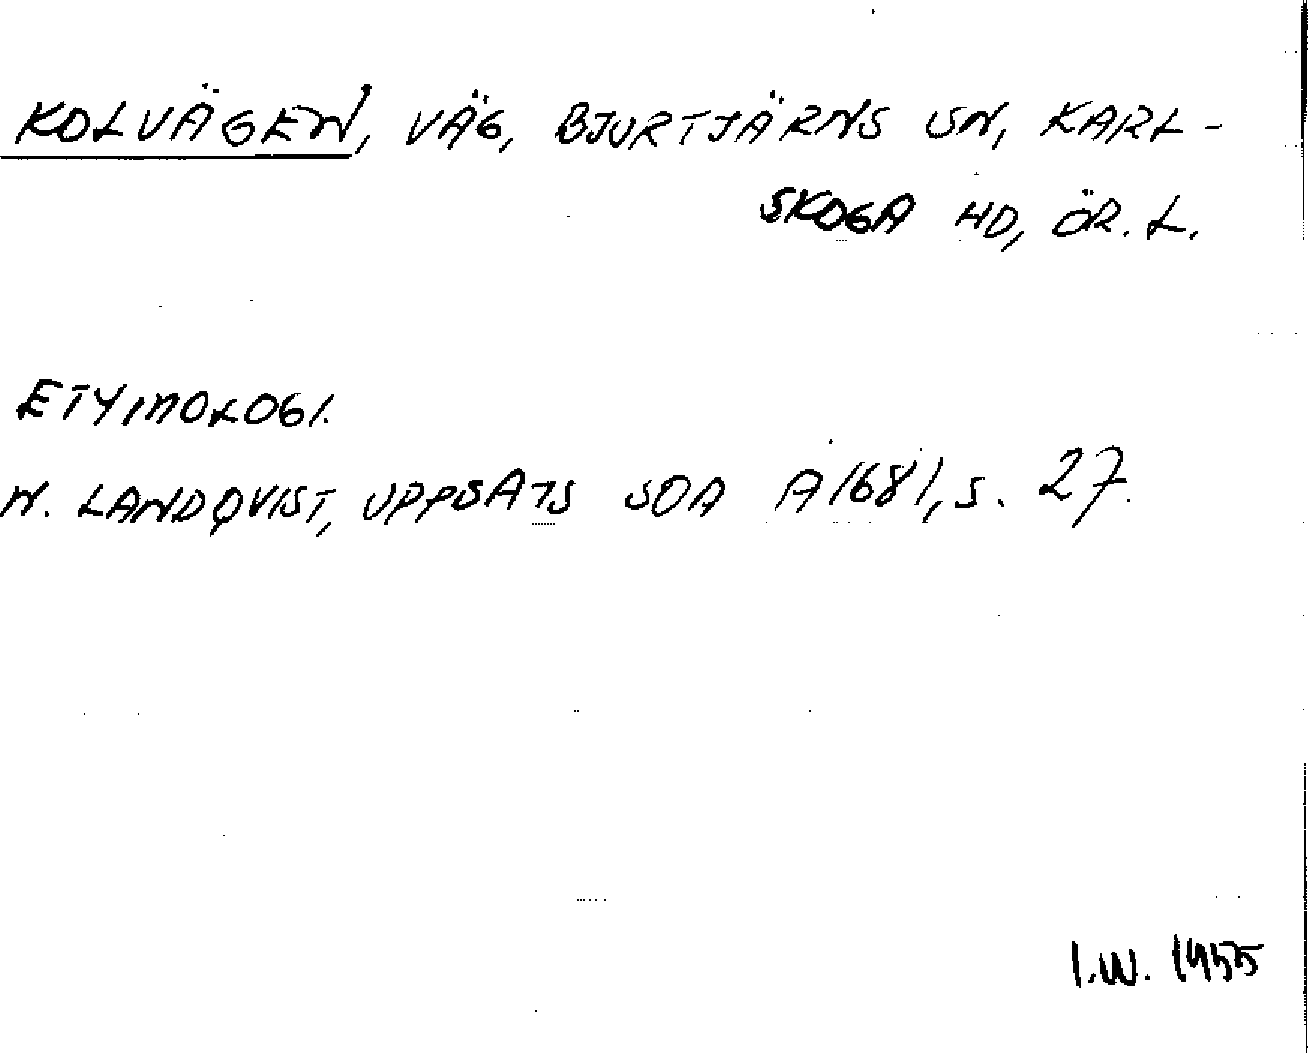 KOLVÄGEN, VÄG, BJURTJÄRNS SN, KARL-
SKOGA HD, ÖR. L.
ETYMOLOGI.
N. LANDQVIST, UPPSATS SOA A1681, s. 27.
I.W. 1955